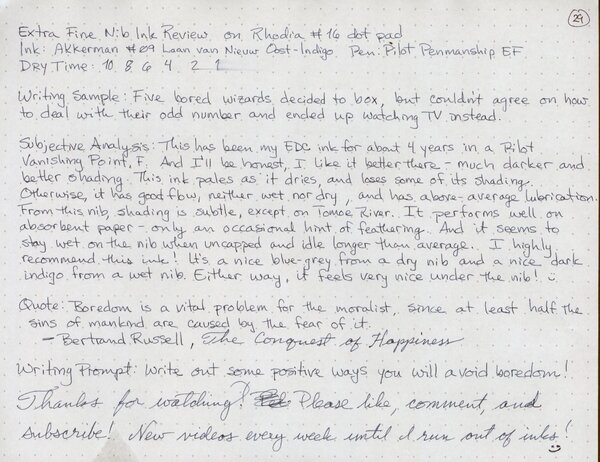 29
Extra Fine Nib Ink Review on Rhodia #16 dot pad
Ink: Akkerman #09 Laan van Nieuw Oost-Indigo Pen: Pilot Penmanship EF
Dry Time: 10 8 6 4 2 1
Writing Sample: Five bored wizards decided to box, but couldn't agree on how
to deal with their odd number and ended up watching TV instead.
Subjective Analysis: This has been my EDC ink for about 4 years in a Pilot
Vanishing Point, F. And I'll be honest, I like it better there - much darker and
better shading. This ink pales as it dries, and loses some of its shading.
Otherwise, it has good flow, neither wet nor dry, and has above-average lubrication.
From this nib, shading is subtle, except on Tomoe River. It performs well on
absorbent paper - only an occasional hint of feathering. And it seems to
stay wet on the nib when uncapped and idle longer than average. I highly
recommend this ink! It's a nice blue-grey from a dry nib and a nice dark
indigo from a wet nib. Either way, it feels very nice under the nib!
Quote: Boredom is a vital problem for the moralist, since at least half the
sins of mankind are caused by the fear of it.
- Bertrand Russell, The Conquest of Happiness
Writing Prompt: Write out some positive ways you will avoid boredom!
Thanks for watching! Please like, comment, and
subscribe! New videos every week until I run out of inks!